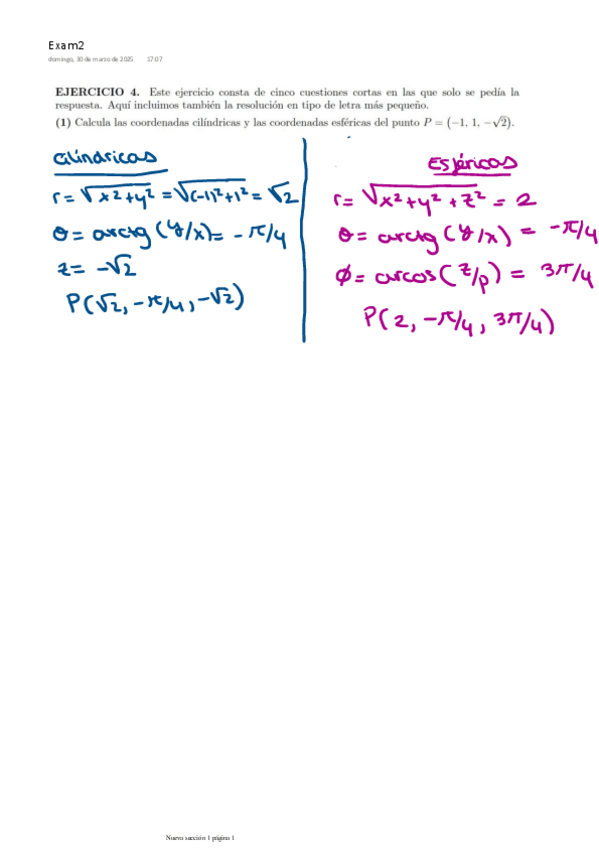 Exam2
domingo, 30 de marzo de 2025 17:07
EJERCICIO 4. Este ejercicio consta de cinco cuestiones cortas en las que solo se pedía la
respuesta. Aquí incluimos también la resolución en tipo de letra más pequeño.
(1) Calcula las coordenadas cilíndricas y las coordenadas esféricas del punto P = (−1, 1, −√2).
Cilíndricas
r = √x²+y² = √(-1)²+1² = √2
θ = arctg (y/x) = -π/4
z = -√2
P(√2, -π/4, -√2)
Esféricas
r = √x²+y²+z² = 2
θ = arctg (y/x) = -π/4
ϕ = arcos (z/ρ) = 3π/4
P(2, -π/4, 3π/4)
Nueva sección 1 página 1